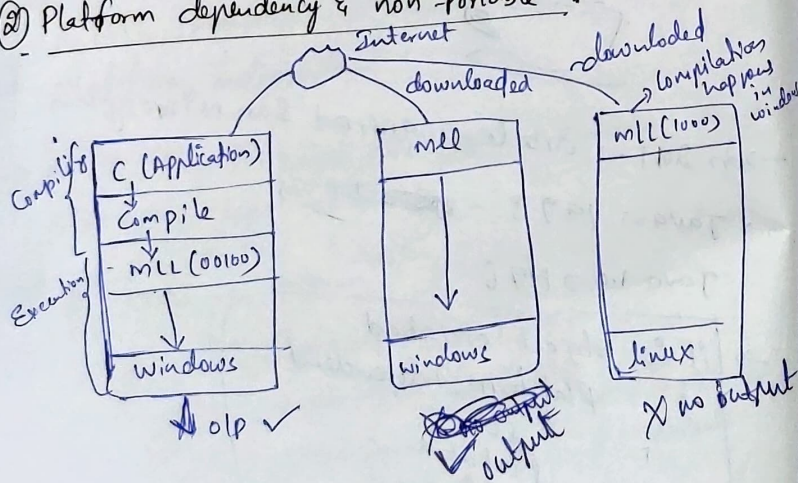 ② Platform dependency & non-portable
Internet
downloaded
downloded
Compilation
happens
in
window
Compiler
C (Application)
Compile
MLL (00100)
Execution
Windows
O/P ✓
mll
windows
✓ output
mLL (1000)
linux
X no output